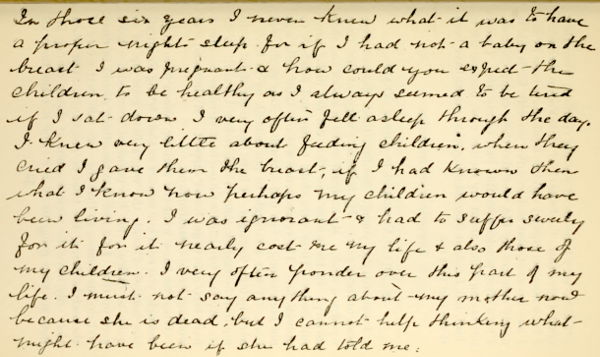 In those six years I never knew what it was to have
a proper nights sleep for if I had not a baby on the
breast I was pregnant & how could you expect the
children to be healthy as I always seemed to be tired
if I sat down I very often fell asleep through the day.
I knew very little about feeding children, when they
cried I gave them the breast, if I had known then
what I know now perhaps my children would have
been living. I was ignorant & had to suffer severly
for it for it nearly cost me my life & also those of
my children. I very often ponder over this part of my
life. I must not say anything about my mother now
because she is dead but I cannot help thinking what
might have been if she had told me.